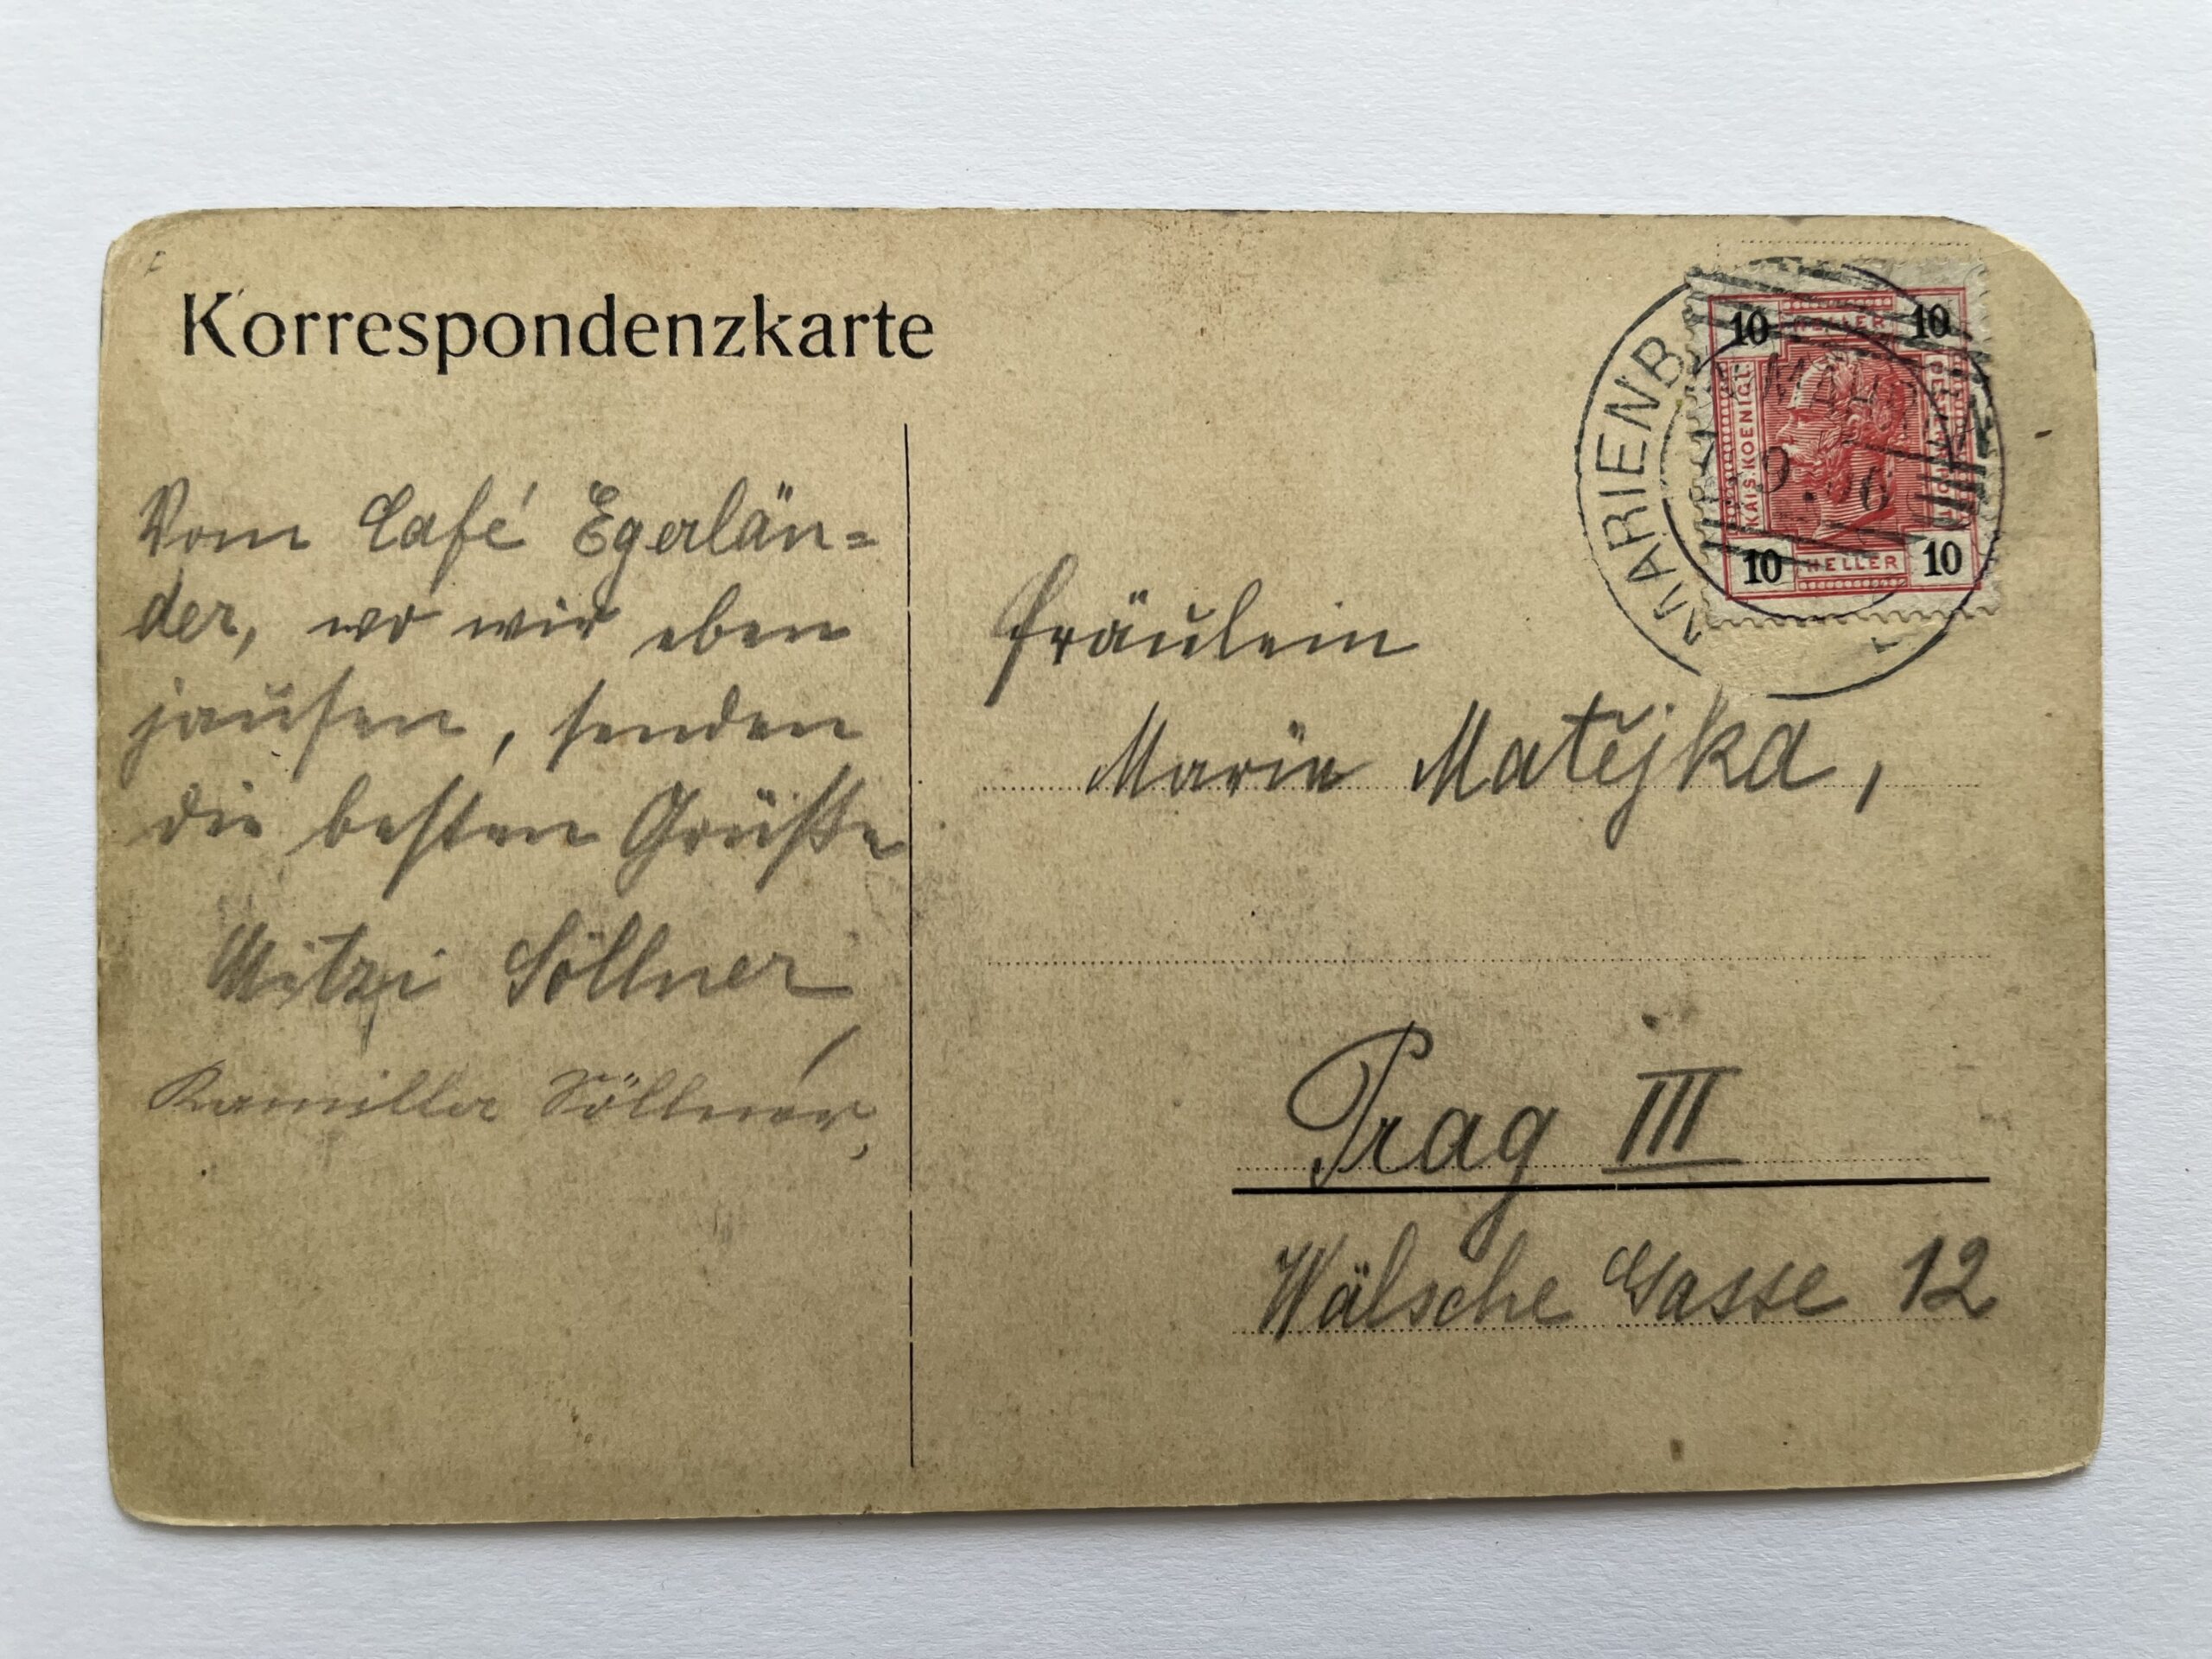 Korrespondenzkarte
Vom Café Egerlän=
der, wo wir eben
jausen, senden
die besten Grüße
Mitzi Söllner
Kamilla Söllner,
Fräulein
Marie Matějka,
Prag III
Wälsche Gasse 12
10 HELLER 10
KAIS. KOENIGL.
10 HELLER 10
MARIENB